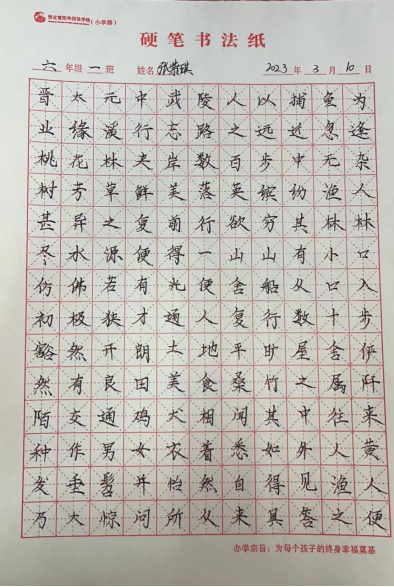 (小学部)
硬笔书法纸
六 年级 一 班 姓名 2023 年 3 月 10 日
晋太元中武陵人以捕鱼为
业缘溪行忘路之远近忽逢
桃花林夹岸数百步中无杂
树芳草鲜美落英缤纷渔人
甚异之复前行欲穷其林林
尽水源便得一山山有小口
仿佛若有光便舍船从口入
初极狭才通人复行数十步
豁然开朗土地平旷屋舍俨
然有良田美食桑竹之属阡
陌交通鸡犬相闻其中往来
种作男女衣着悉如外人黄
发垂髫并怡然自得见渔人
乃大惊问所从来具答之便
办学宗旨：为每个孩子的终身幸福奠基